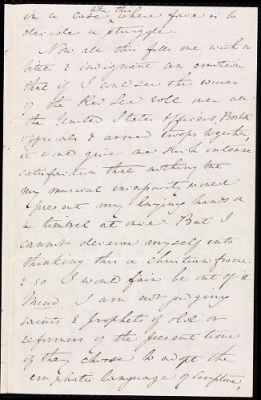 in a case like this where force is to
decide a struggle.
Now all this fills me with so
bitter & indignant an emotion
that if I could see the waves
of the Red Sea roll over all
the United States Officers, Boston
officials & armed troops together,
it would give me such intense
satisfaction that nothing but
my musical incapacity would
prevent my laying hands on
a timbrel at once. But I
cannot deceive myself into
thinking this a Christian frame
& so I would fain be out of it
Mind, I am not judging
saints & prophets of old or
reformers of the present time
if they choose to adopt the
emphatic language of Scripture,